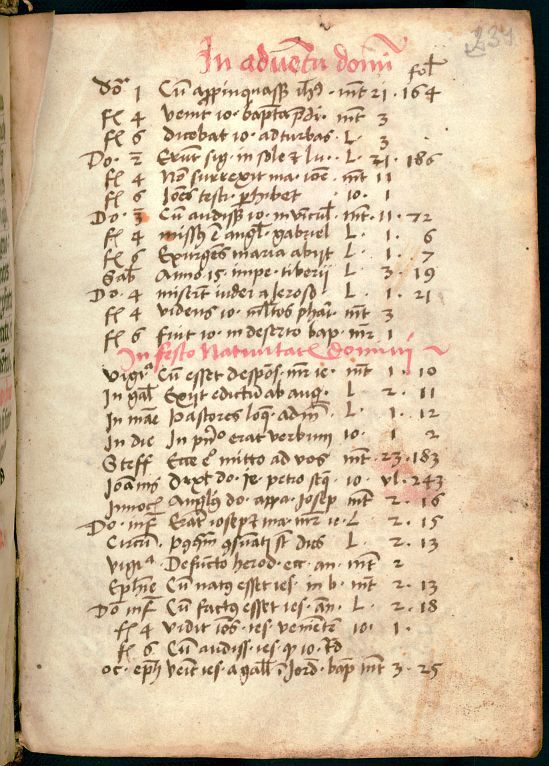 237
In adventu domī
fol
Do 1 Cū appropinquass ihs · mt 21 · 164
fr 4 venit io · bapta pdi · mt 3
fr 6 dicebat io · ad turbas · L · 3
Do · 2 Erūt sig · in sole et lu · L · 21 · 186
fr 4 Nō surrexit ma · ioe · mt 11
fr 6 Ioes testi · perhibet io · 1
Do · 3 Cū audiss io · in vincul · mt · 11 · 72
fr 4 missus ē angel · gabriel L · 1 · 6
fr 6 Exurgēs maria abijt L · 1 · 7
Sab Anno 15 · impe · tiberii L · 3 · 19
Do · 4 miserūt iudei a Ieroso L · 1 · 21
fr 4 videns io · multos phar · mt 3
fr 6 fuit io · in deserto bap · mr 1
In festo Nativitat Domini
vigi Cū esset despōs · mr ie · mt 1 · 10
In gal Exijt edictū ab aug · L · 2 · 11
In mane Pastores loq · adīn L · 1 · 12
In die In pno erat verbum io · 1 2
Steff Ecce eo mitto ad vos mt · 23 · 183
Ioānis Dixit do · ie · petro seq io · vl · 243
Innoc Angelus do · appa · Iosep mt 2 · 16
Do · inf Erat iosep et ma · mr ie · L · 2 · 15
Circū · Postqm ꝯsūati st dies L · 2 · 13
vigi Defuncto herod · ecc · an · mt 2
Ephie Cū natus esset ies · in b · mt 2 · 13
Do inf Cū factus esset ies · an · L · 2 · 18
fr 4 vidit ioes · ies · venientē io · 1 ·
fr 6 Cū audiss · ies · io · td
oc · eph venit ies · a gal ī Iord · bap mt 3 · 25